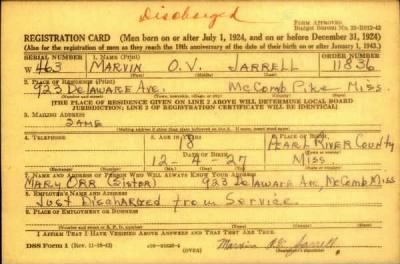 Discharged
FORM APPROVED
REGISTRATION CARD (Men born on or after July 1, 1924, and on or before December 31, 1924)
(Also for the registration of men as they reach the 18th anniversary of the date of their birth on or after January 1, 1943.)
SERIAL NUMBER 1. NAME (Print) ORDER NUMBER
W 463 MARVIN O.V. JARRELL 11836
(First) (Middle) (Last)
2. PLACE OF RESIDENCE (Print)
923 DeLaware Ave. McComb Pike Miss.
[THE PLACE OF RESIDENCE GIVEN ON LINE 2 ABOVE WILL DETERMINE LOCAL BOARD
JURISDICTION; LINE 2 OF REGISTRATION CERTIFICATE WILL BE IDENTICAL]
3. MAILING ADDRESS
Same
4. TELEPHONE 5. AGE IN YEARS 6. PLACE OF BIRTH
18 Pearl River County
DATE OF BIRTH
12-4-27 Miss.
7. NAME AND ADDRESS OF PERSON WHO WILL ALWAYS KNOW YOUR ADDRESS
Mary Orr (Sister) 923 DeLaware Ave. McComb Miss
8. EMPLOYER'S NAME AND ADDRESS
Just Discharged from Service
9. PLACE OF EMPLOYMENT OR BUSINESS
I AFFIRM THAT I HAVE VERIFIED ABOVE ANSWERS AND THAT THEY ARE TRUE.
DSS Form 1 (OVER) Marvin O.V. Jarrell